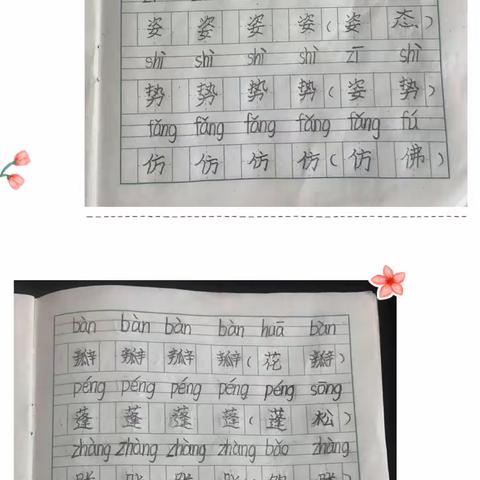 姿 姿 姿 姿 ( 姿 态 )
shì shì shì shì zī shì
势 势 势 势 ( 姿 势 )
fǎng fǎng fǎng fǎng fǎng fú
仿 仿 仿 仿 ( 仿 佛 )
bàn bàn bàn bàn huā bàn
瓣 瓣 瓣 瓣 ( 花 瓣 )
péng péng péng péng péng sōng
蓬 蓬 蓬 蓬 ( 蓬 松 )
zhàng zhàng zhàng zhàng bǎo zhàng